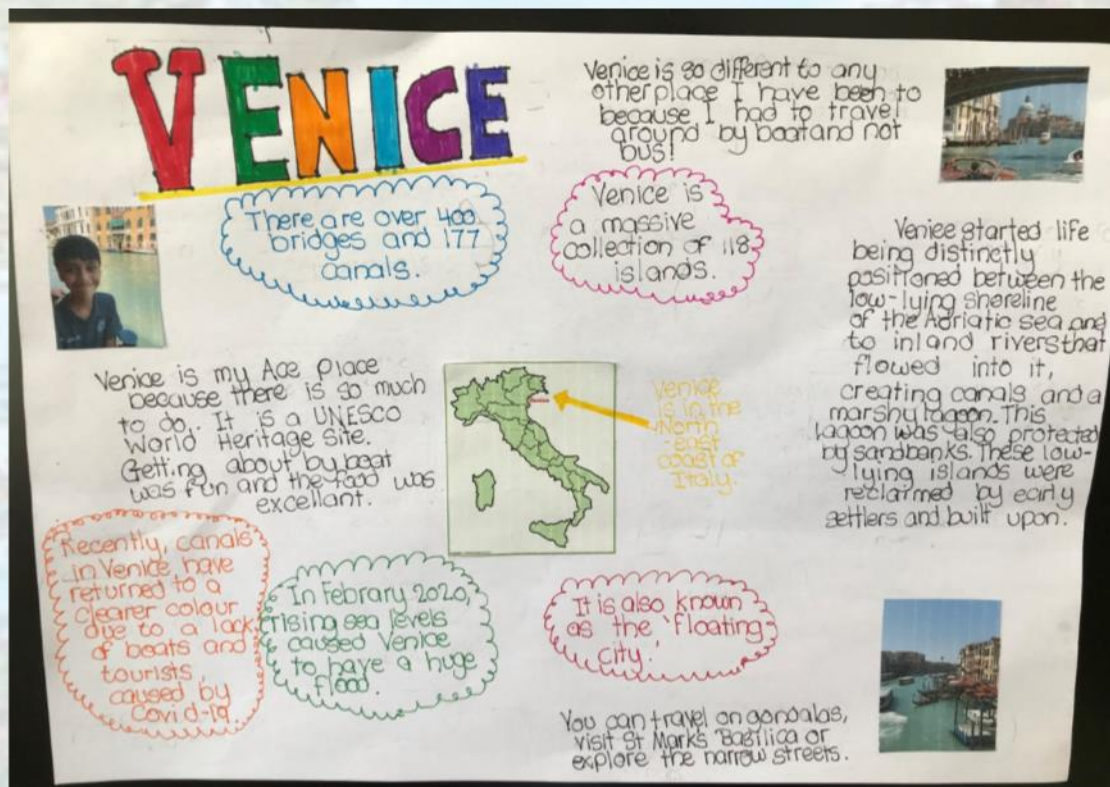 VENICE
Venice is so different to any
other place I have been to
because I had to travel
around by boat and not
bus!
There are over 400
bridges and 177
canals.
Venice is
a massive
collection of 118
islands.
Venice started life
being distinctly
positioned between the
low-lying shoreline
of the Adriatic sea and
to inland rivers that
flowed into it,
creating canals and a
marshy lagoon. This
lagoon was also protected
by sandbanks. These low-
lying islands were
reclaimed by early
settlers and built upon.
Venice is my Ace Place
because there is so much
to do. It is a UNESCO
World Heritage Site.
Getting about by boat
was fun and the food was
excellant.
Venice
is in the
North
-east
coast of
Italy.
Recently, canals
in Venice have
returned to a
clearer colour
due to a lack
of boats and
tourists
caused by
Covid-19.
In Febrary 2020,
rising sea levels
caused Venice
to have a huge
flood.
It is also known
as the 'floating-
city.'
You can travel on gondalas,
visit St Mark's Basilica or
explore the narrow streets.